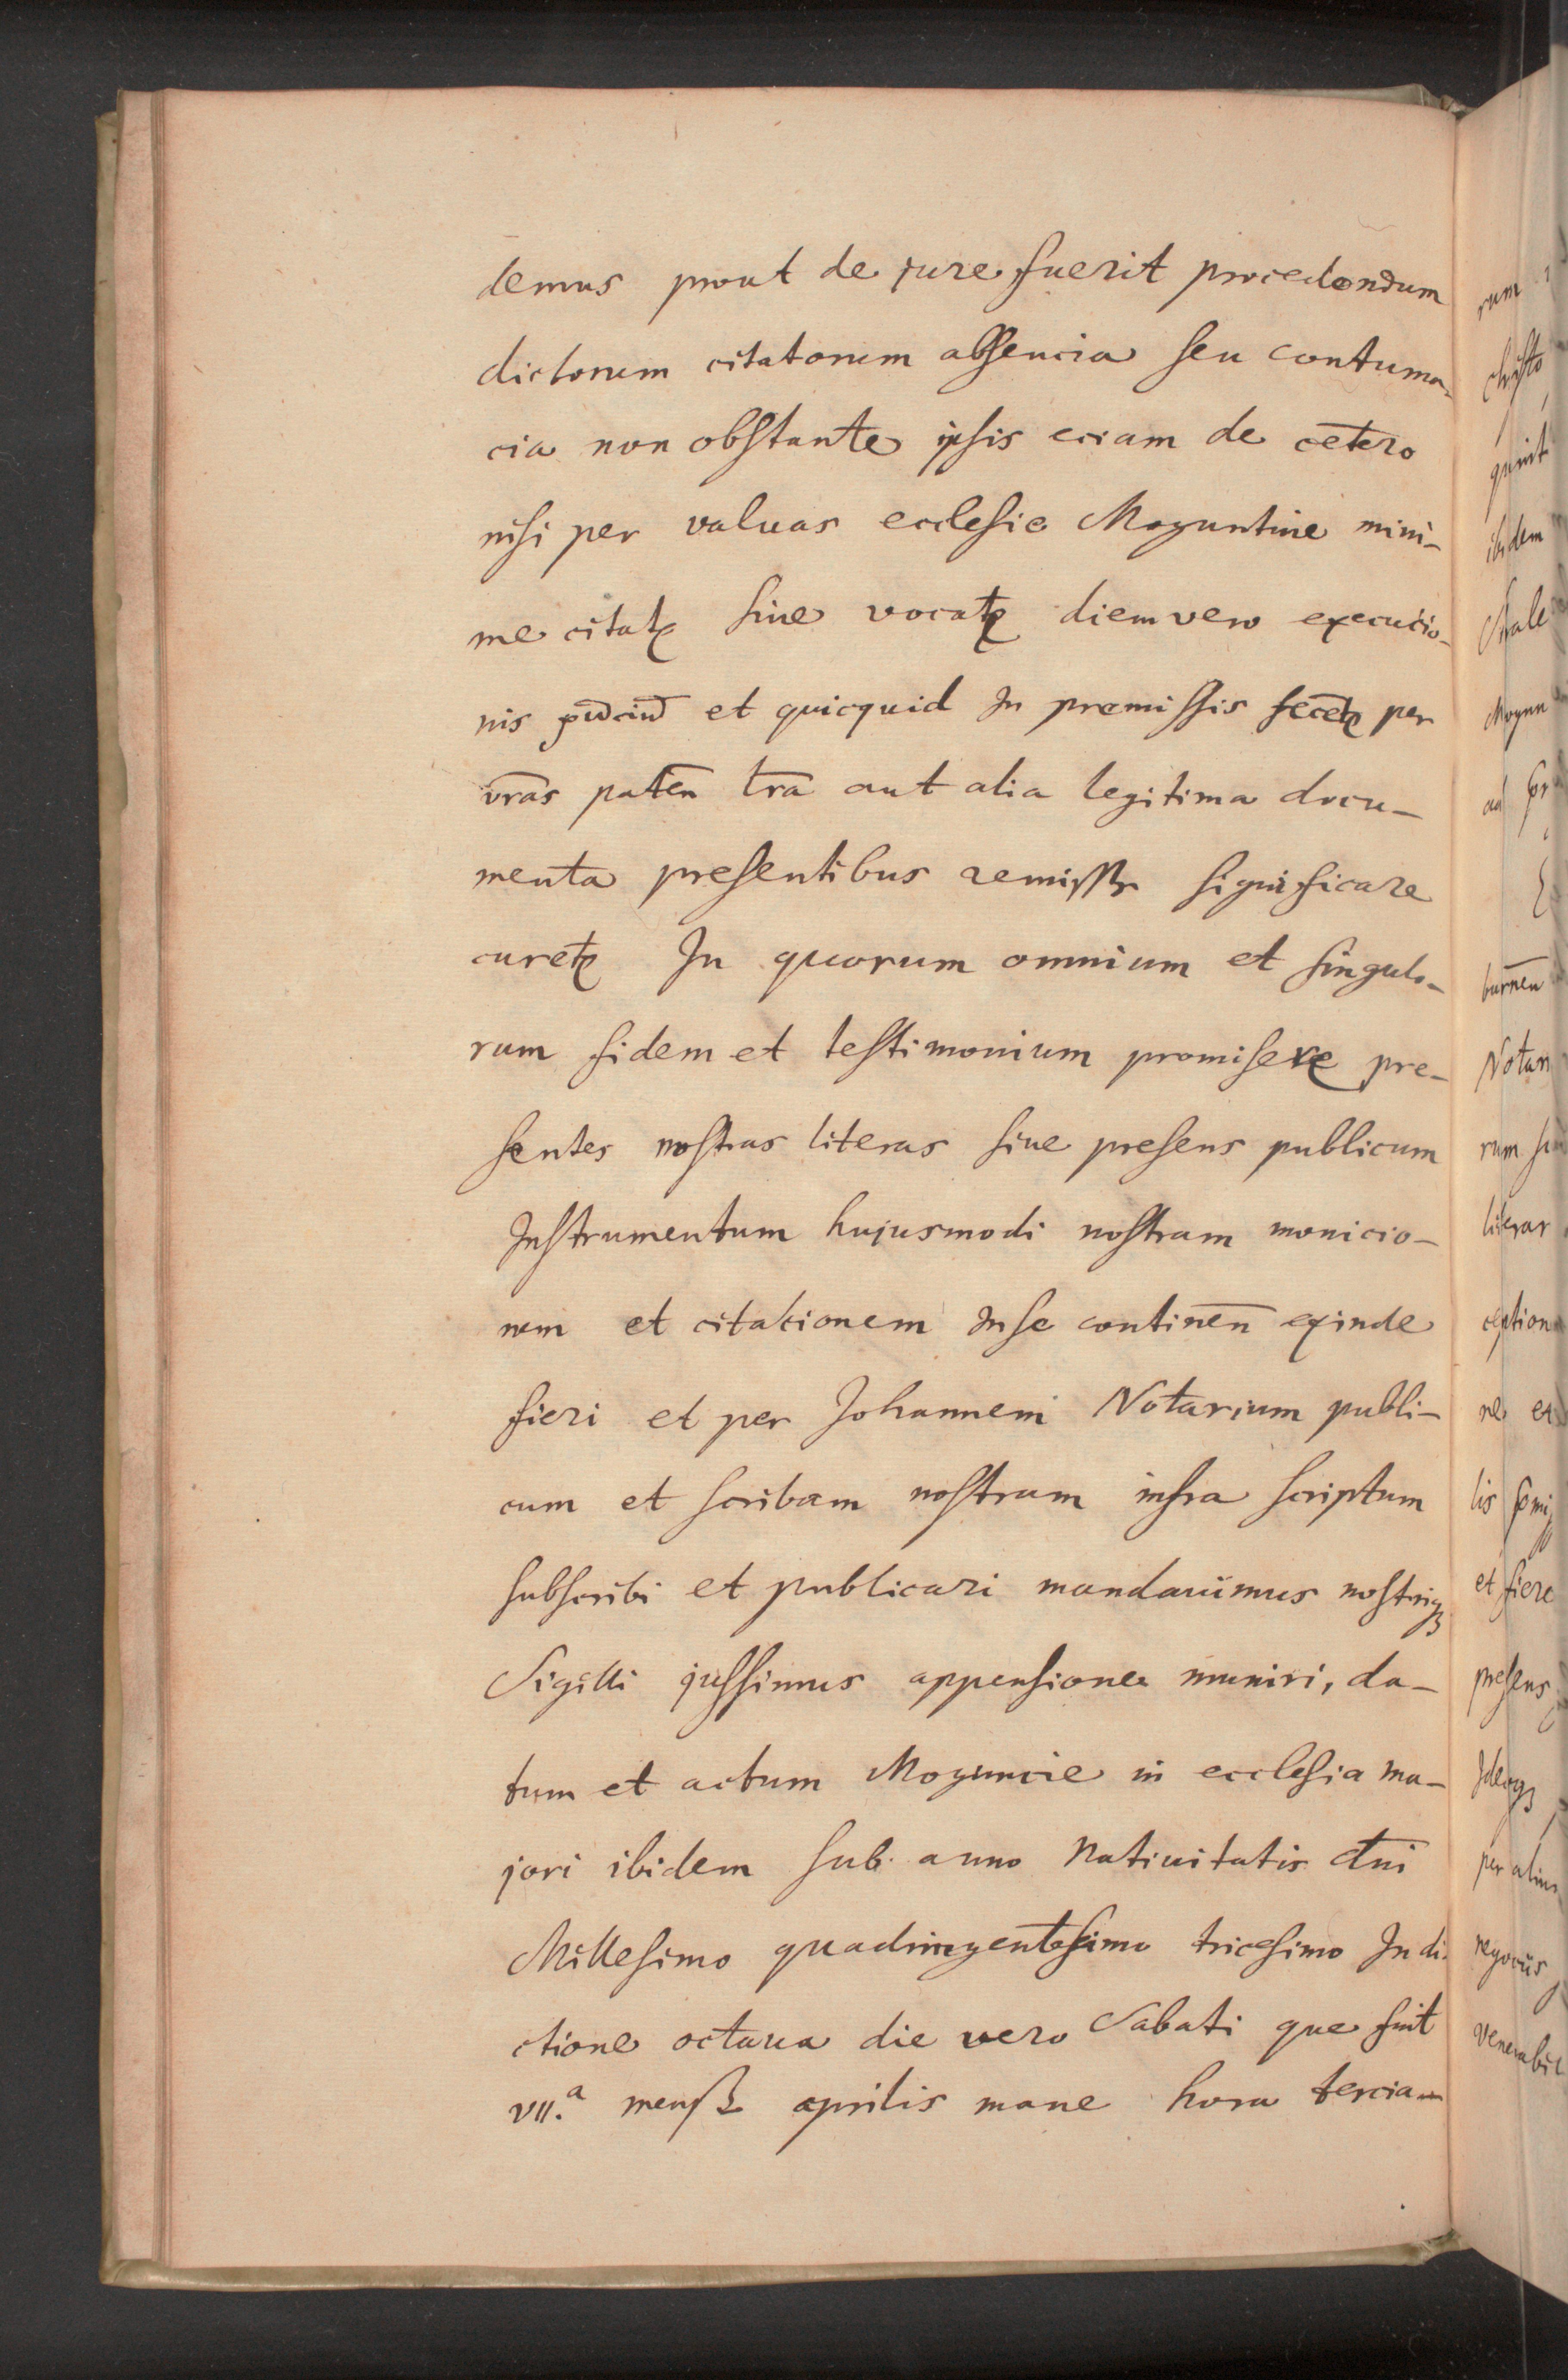 demus prout de jure fuerit procedendum
dictorum citatorum absencia seu contuma-
cia non obstante ipsis eciam de cetero
nisi per valuas ecclesie Moguntine mini-
me citatꝭ siue vocatꝭ diem vero execucio-
nis et quicquid In premissis fecetꝭ per
vr̄as patēn tr̄a aut alia legitima docu-
menta presentibus remissꝭ significare
curetꝭ In quorum omnium et singulo-
rum fidem et testimonium promisexꝭ pre-
sentes nostras literas siue presens publicum
Instrumentum hujusmodi nostram monicio-
nem et citationem Inse continēn exinde
fieri et per Johannem Notarium publi-
cum et scribam nostrum infra scriptum
subscribi et publicari mandauimus nostriqꝫ
Sigilli jussimus appensione muniri, da-
tum et actum Moguncie in ecclesia ma-
jori ibidem sub anno Natiuitatis dn̄i
Millesimo quadringentesimo tricesimo Indi-
ctione octaua die vero Sabati que fuit
VII.ᵃ mensꝭ aprilis mane hora tercia
rum
christo
quint
ibidem
Mogun
ad
burnēn
Notar
rum
literar
ception
ne et
lis
et fiere
presens
per alium
negociis
venerabil